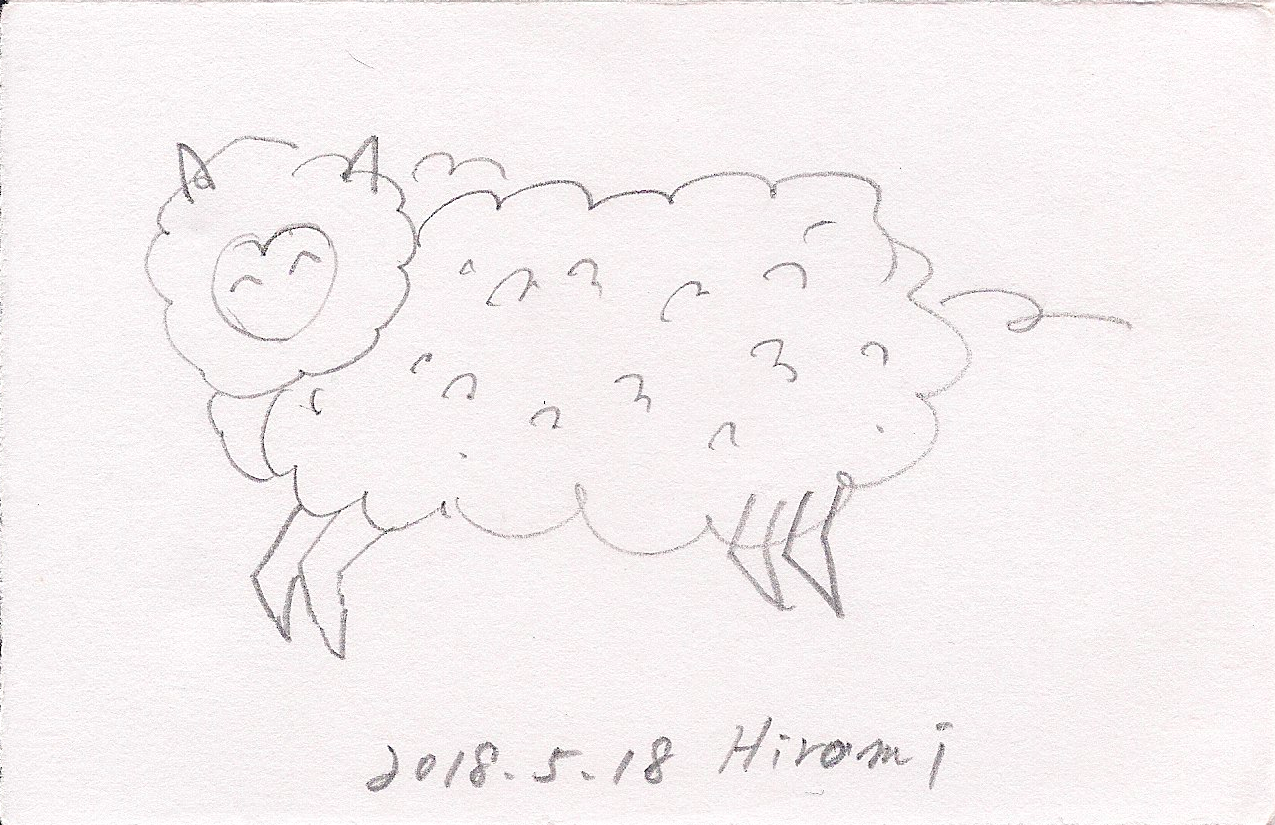 2018.5.18 Hirami